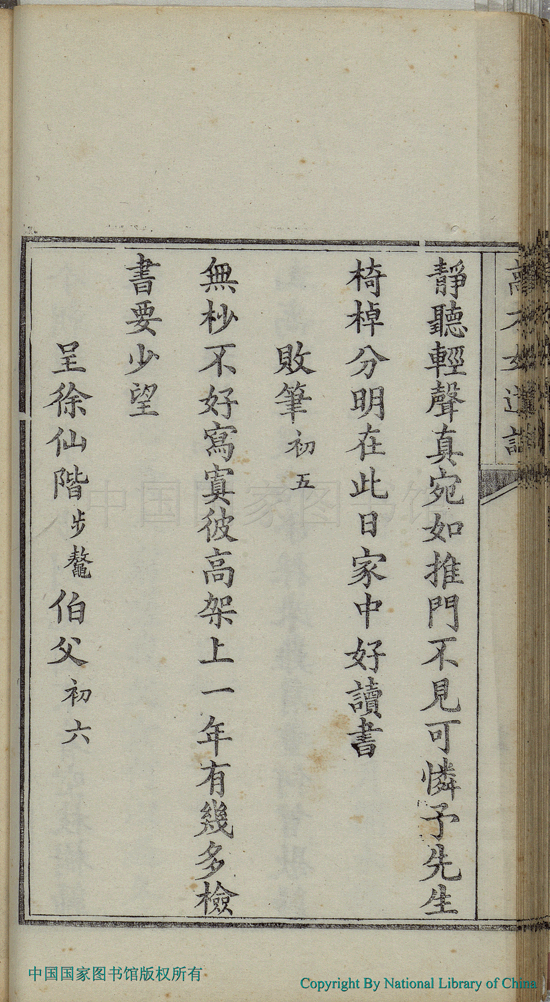 靜聽輕聲真宛如推門不見可憐予先生
椅棹分明在此日家中好讀書
敗筆初五
無杪不好寫寘彼高架上一年有幾多檢
書要少望
呈徐仙階步鼇伯父初六
中国国家图书馆
中国国家图书馆版权所有
Copyright By National Library of China